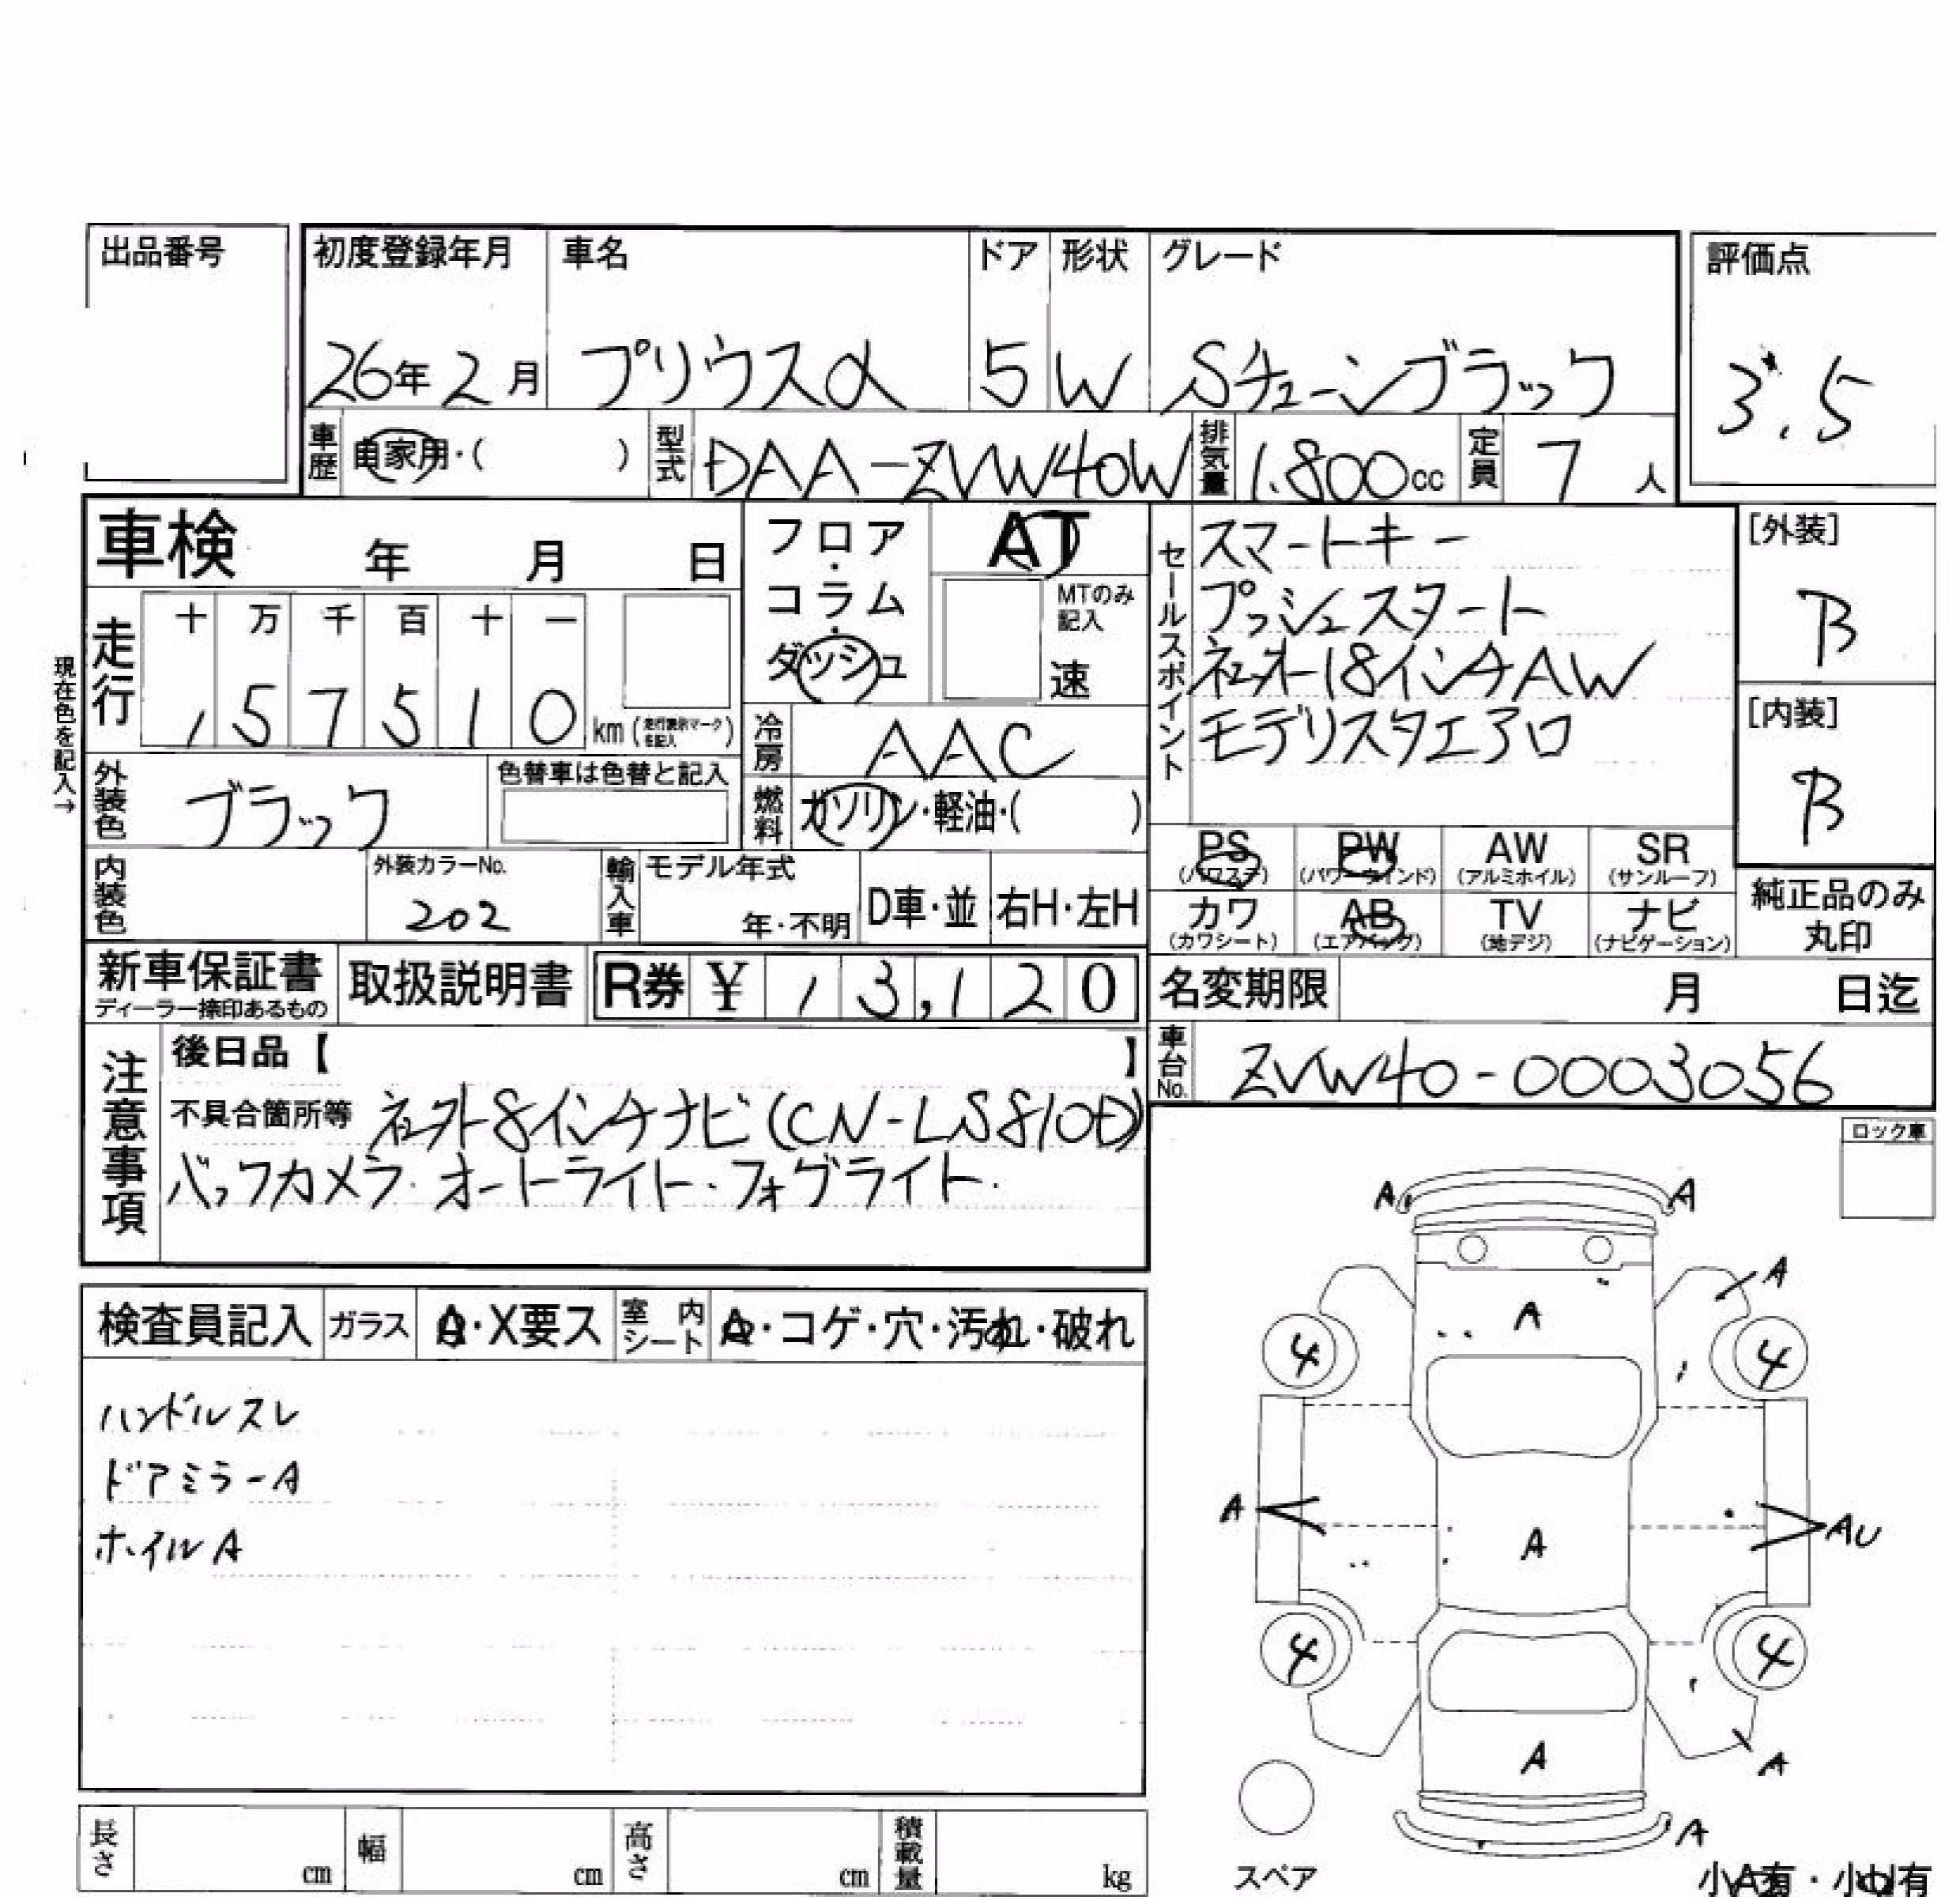 出品番号
初度登録年月 車名 ドア 形状 グレード 評価点
26年 2月 プリウスα 5 W Sチューンブラック 3.5
車歴 自家用・( ) 型式 DAA-ZVW40W 排気量 1.800cc 定員 7人
車検 年 月 日
フロア・コラム・ダッシュ
AT
MTのみ記入
速
セールスポイント
スマートキー
プッシュスタート
社外18インチAW
モデリスタエアロ
[外装]
B
[内装]
B
現在色を記入→
走行 十 万 千 百 十 一
1 5 7 5 1 0 km (走行表示マークを記入)
冷房 AAC
外装色 ブラック 色替車は色替と記入
燃料 ガソリン・軽油・( )
内装色 外装カラーNo. 202
輸入車 モデル年式 年・不明 D車・並 右H・左H
PS (パワステ) PW (パワーウインド) AW (アルミホイル) SR (サンルーフ)
カワ (カワシート) AB (エアバッグ) TV (地デジ) ナビ (ナビゲーション)
純正品のみ丸印
新車保証書 ディーラー捺印あるもの 取扱説明書 R券 ¥ 13,120
名変期限 月 日迄
車台No. ZVW40-0003056
注意事項
後日品【 】
不具合箇所等 社外8インチナビ(CN-LS810D)
バックカメラ・オートライト・フォグライト.
ロック車
検査員記入 ガラス A・X要ス 室内シート A・コゲ・穴・汚れ・破れ
ハンドルスレ
ドアミラーA
ホイルA
A A
A
A
4 4
A A AU
4 4
A A
A
スペア
小A有・小U有
長さ cm 幅 cm 高さ cm 積載量 kg